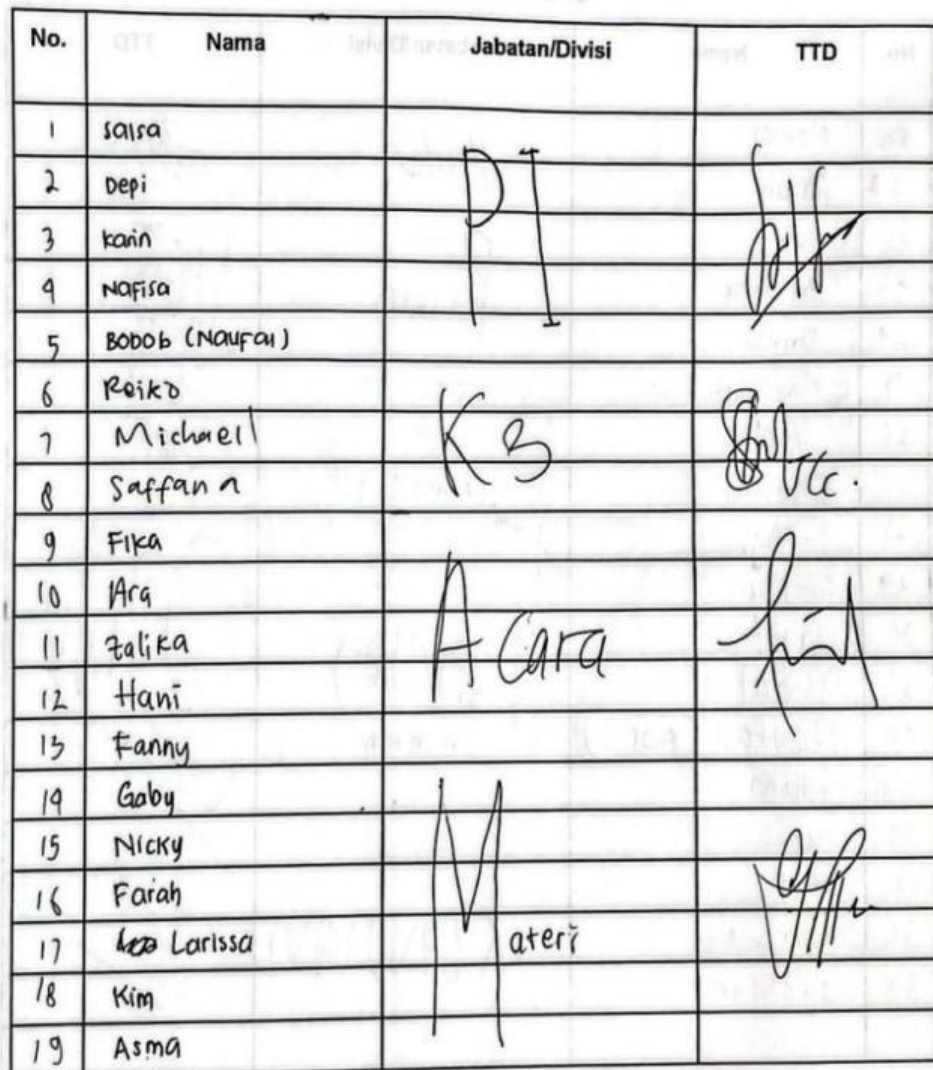 No. Nama Jabatan/Divisi TTD
1 Salsa
2 Depi
3 Karin
4 Nafisa
PI
5 Bobob (Naufal)
6 Reiko
7 Michael
K3
8 Saffana
9 Fika
10 Ara
11 Zalika
Acara
12 Hani
13 Fanny
14 Gaby
15 Nicky
16 Farah
17 Larissa
Materi
18 Kim
19 Asma